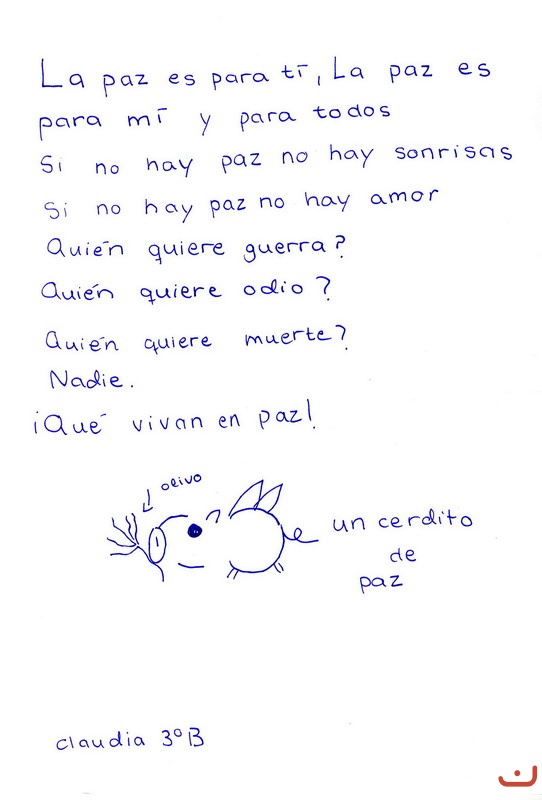 La paz es para tí, La paz es
para mí y para todos
Si no hay paz no hay sonrisas
Si no hay paz no hay amor
Quién quiere guerra?
Quién quiere odio?
Quién quiere muerte?
Nadie.
¡Qué vivan en paz!
olivo
un cerdito
de
paz
claudia 3º B